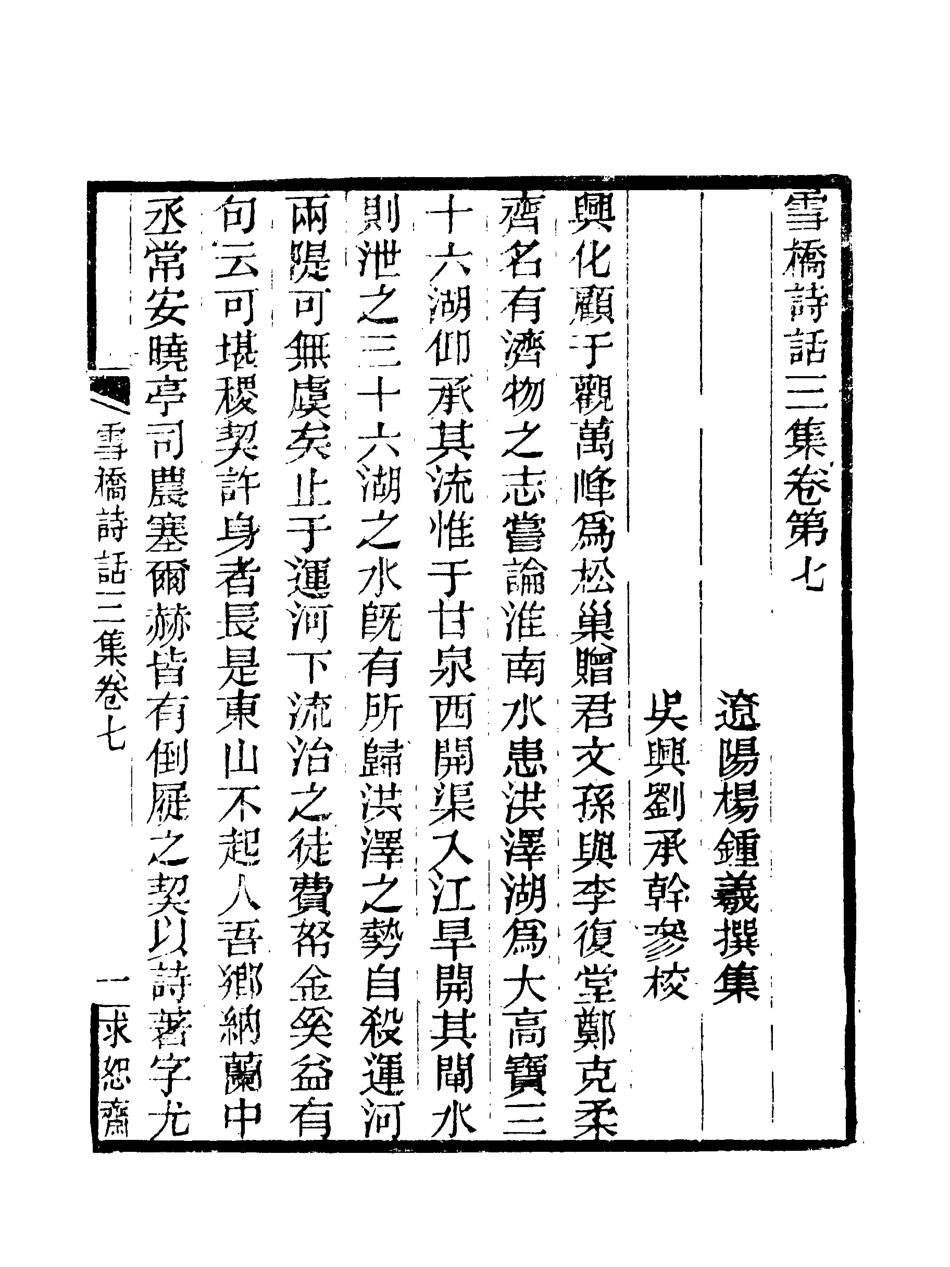 雪橋詩話三集卷第七
遼陽楊鍾羲撰集
吳興劉承幹參校
興化顧于觀萬峰爲松巢贈君文孫與李復堂鄭克柔
齊名有濟物之志嘗論淮南水患洪澤湖爲大高寶三
十六湖仰承其流惟于甘泉西開渠入江旱開其閘水
則泄之三十六湖之水旣有所歸洪澤之勢自殺運河
兩隄可無虞矣止于運河下流治之徒費帑金奚益有
句云可堪稷契許身者長是東山不起人吾鄉納蘭中
丞常安曉亭司農塞爾赫皆有倒屣之契以詩著字尤
雪橋詩話三集卷七
一
求恕齋